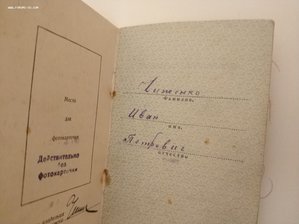 Место
для
фотокарточки
Действительно
без
фотокарточки
Чипенко
фамилия
Иван
имя
Петрович
отчество